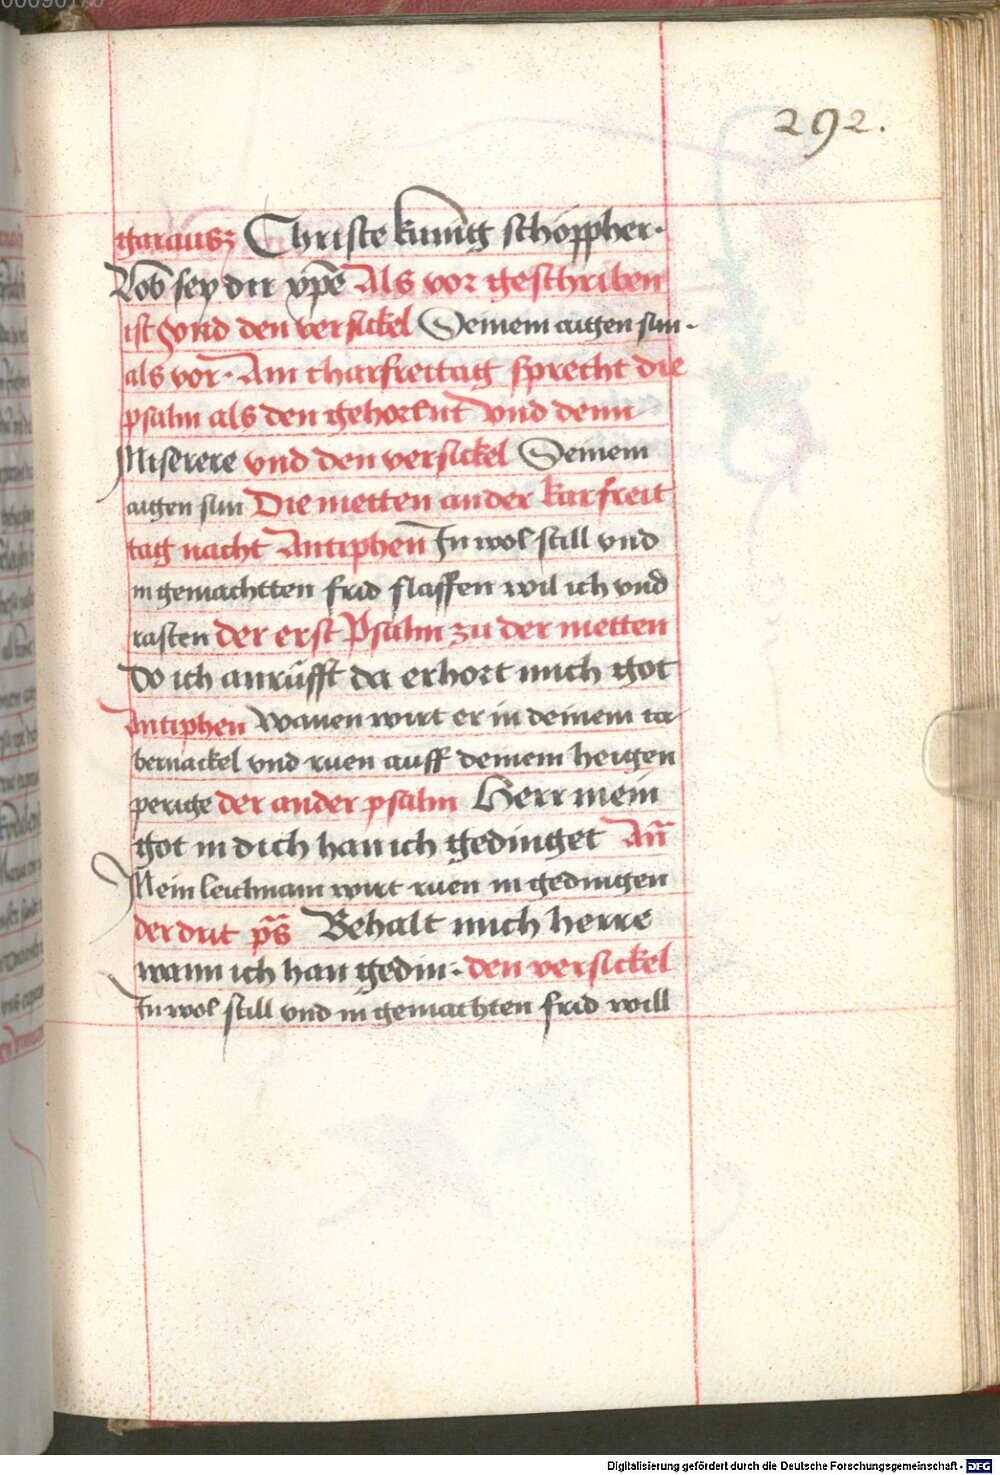 292.
garausz Christe kunig schoppher.
Lob sey dir xpe Als vor geschriben
ist vnd den versickel Seinem aigen sun.
als vor. Am charfreitag sprecht die
psalm als den gehorent vnd denn
Miserere vnd den versickel Seinem
aigen sun Die metten an der karfreit
tag nacht Antiphen In wol still vnd
in gemachtten frid slaffen wil ich vnd
rasten der erst Psalm zu der metten
Do ich anrüfft da erhort mich got
Antiphen wanen wirt er in deinem ta
bernackel vnd ruen auff deinem heigen
perige der ander psalm Herr mein
got in dich han ich gedinget An̄
Mein leichnam wirt ruen in gedingen
der drit ps̄ Behalt mich herre
wann ich han gedin. den versickel
In wol still vnd in gemachten frid will
Digitalisierung gefördert durch die Deutsche Forschungsgemeinschaft - DFG